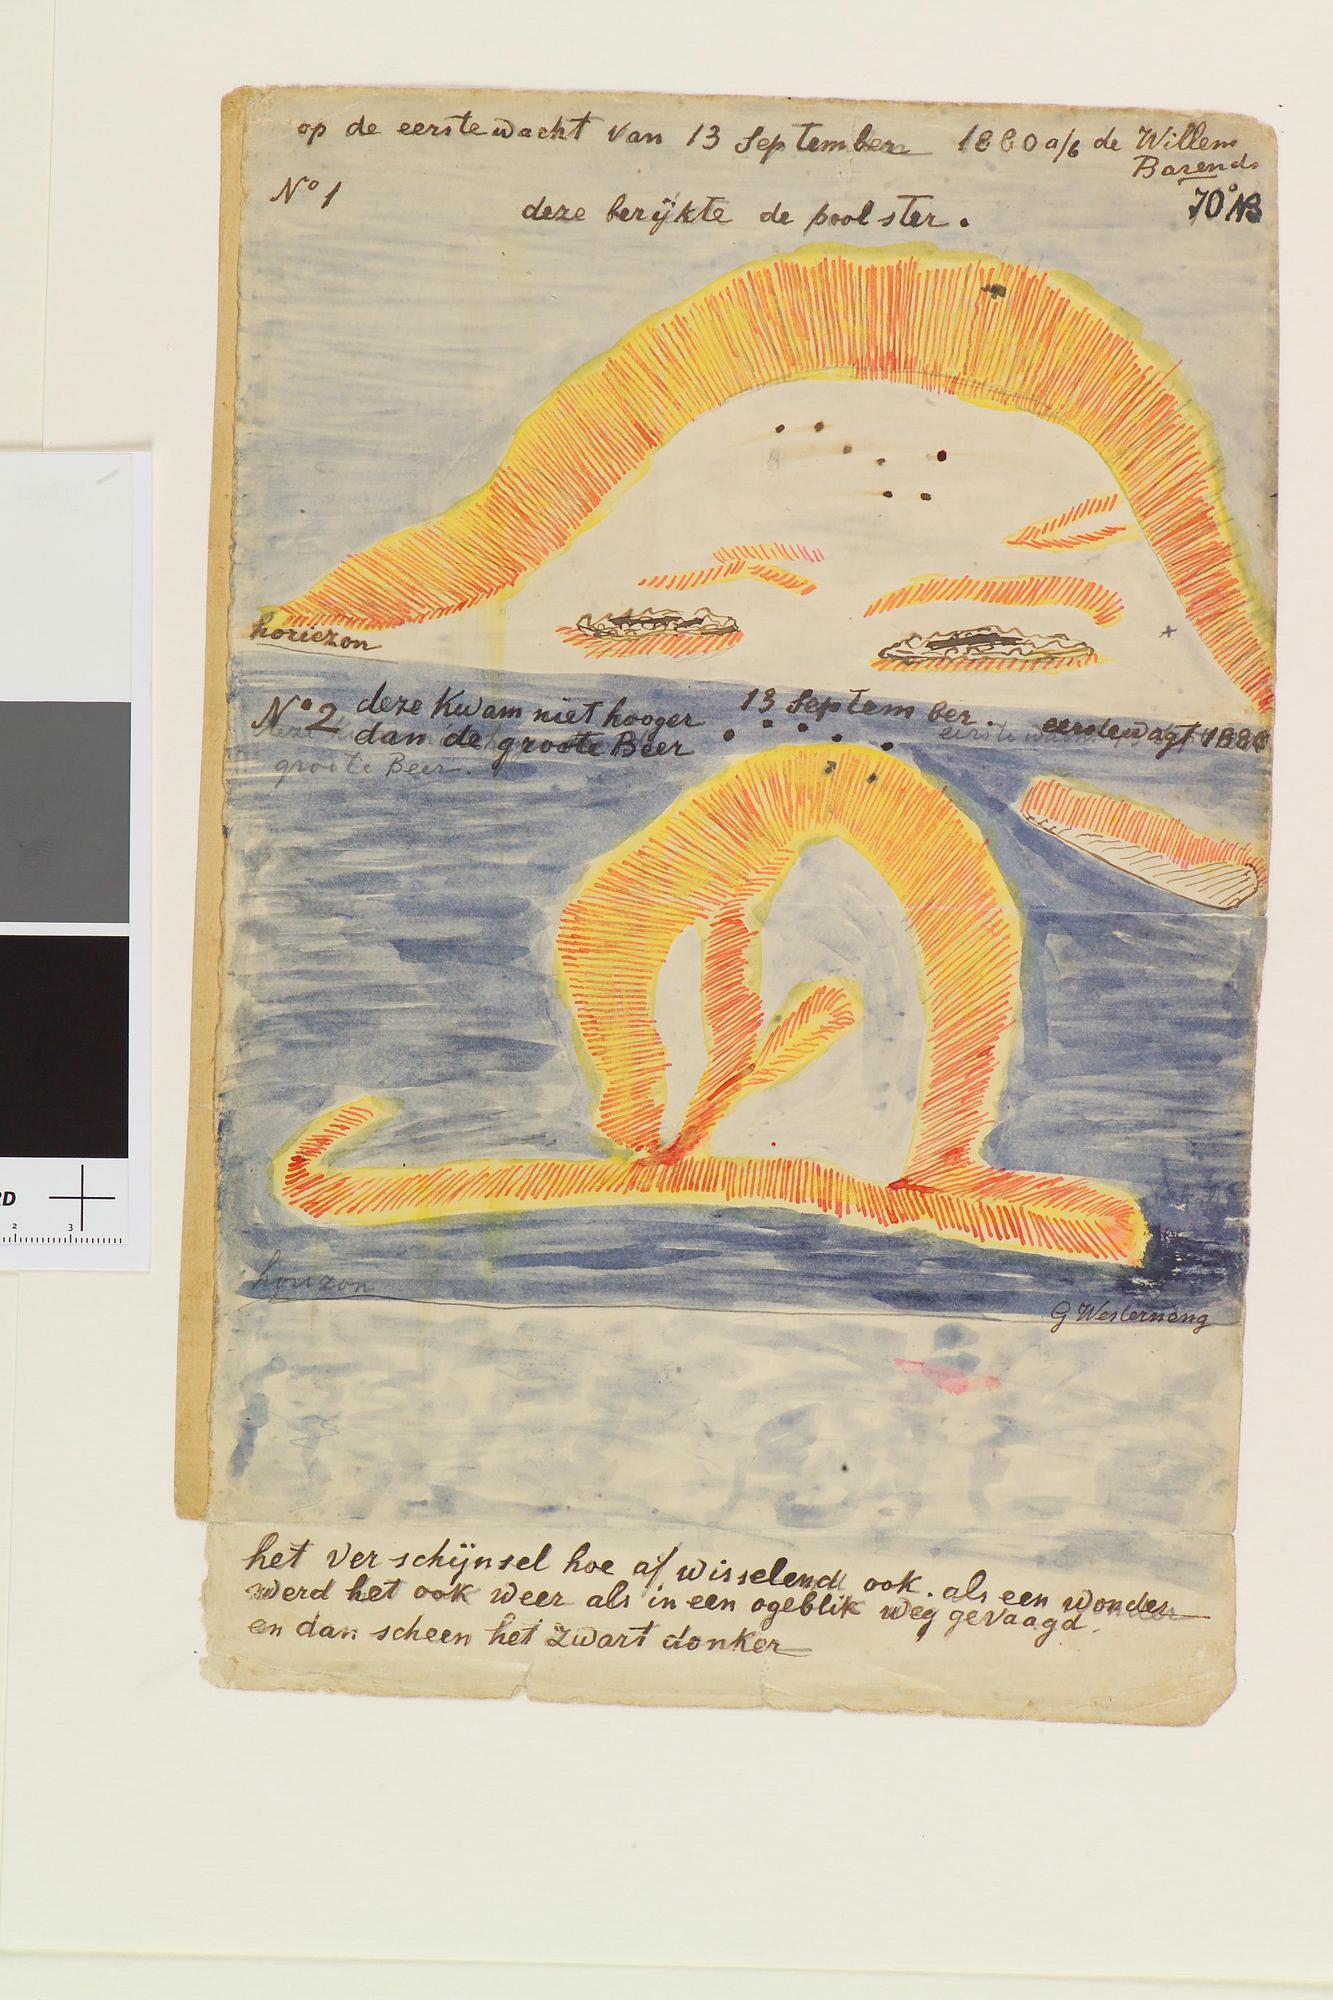 op de eerste wacht van 13 September 1880 a/b de Willem
Barends
No 1
70° NB
deze berijkte de poolster.
horiezon
No 2 deze Kwam niet hooger 13 September. eerstewagt 1880
dan de groote Beer
groote Beer.
horizon
G Westerneng
het verschijnsel hoe afwisselend ook. als een wonder
werd het ook weer als in een ogeblik weg gevaagd.
en dan scheen het zwart donker
RD
2 3